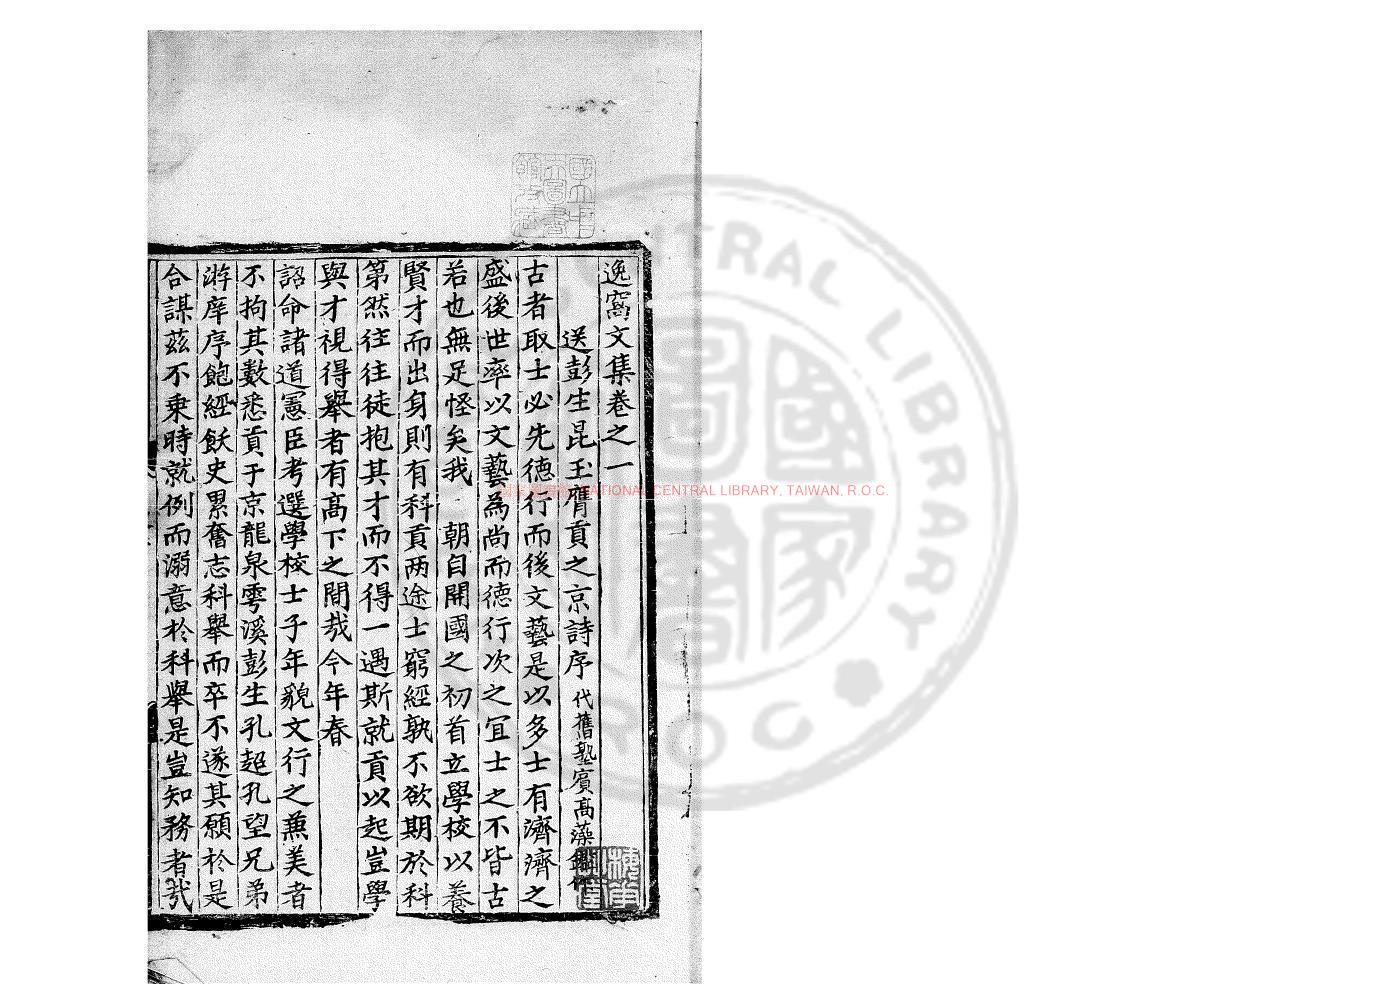 逸窩文集卷之一
送彭生昆玉膺貢之京詩序 代舊塾賓高藻鑑作
古者取士必先德行而後文藝是以多士有濟濟之
盛後世率以文藝為尚而德行次之宜士之不皆古
若也無足怪矣我 朝自開國之初首立學校以養
賢才而出身則有科貢两途士窮經孰不欲期於科
第然往往徒抱其才而不得一遇斯就貢以起豈學
與才視得舉者有高下之間哉今年春
詔命諸道憲臣考選學校士子年貌文行之兼美者
不拘其數悉貢于京龍泉雩溪彭生孔超孔望兄弟
游庠序飽經飫史累奮志科舉而卒不遂其願於是
合謀茲不乘時就例而溺意於科舉是豈知務者哉
國家圖書館 NATIONAL CENTRAL LIBRARY, TAIWAN, R.O.C.
CENTRAL LIBRARY
R.O.C
國家圖書
國立中央圖書館收藏